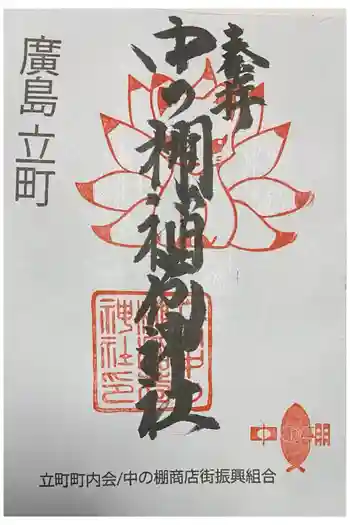 奉拝
中の棚稲荷神社
廣島立町
中 棚
立町町内会/中の棚商店街振興組合